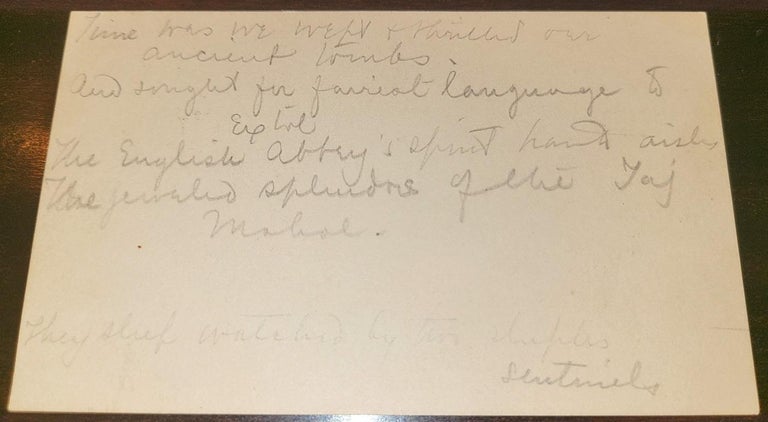 Time was we wept & thrilled our
ancient tombs.
And sought for fairest language to
Extol
The English Abbey's spirit haunt aisles
The jeweled splendors of the Taj
Mahal.
They sleep watched by two sleepless
sentinels